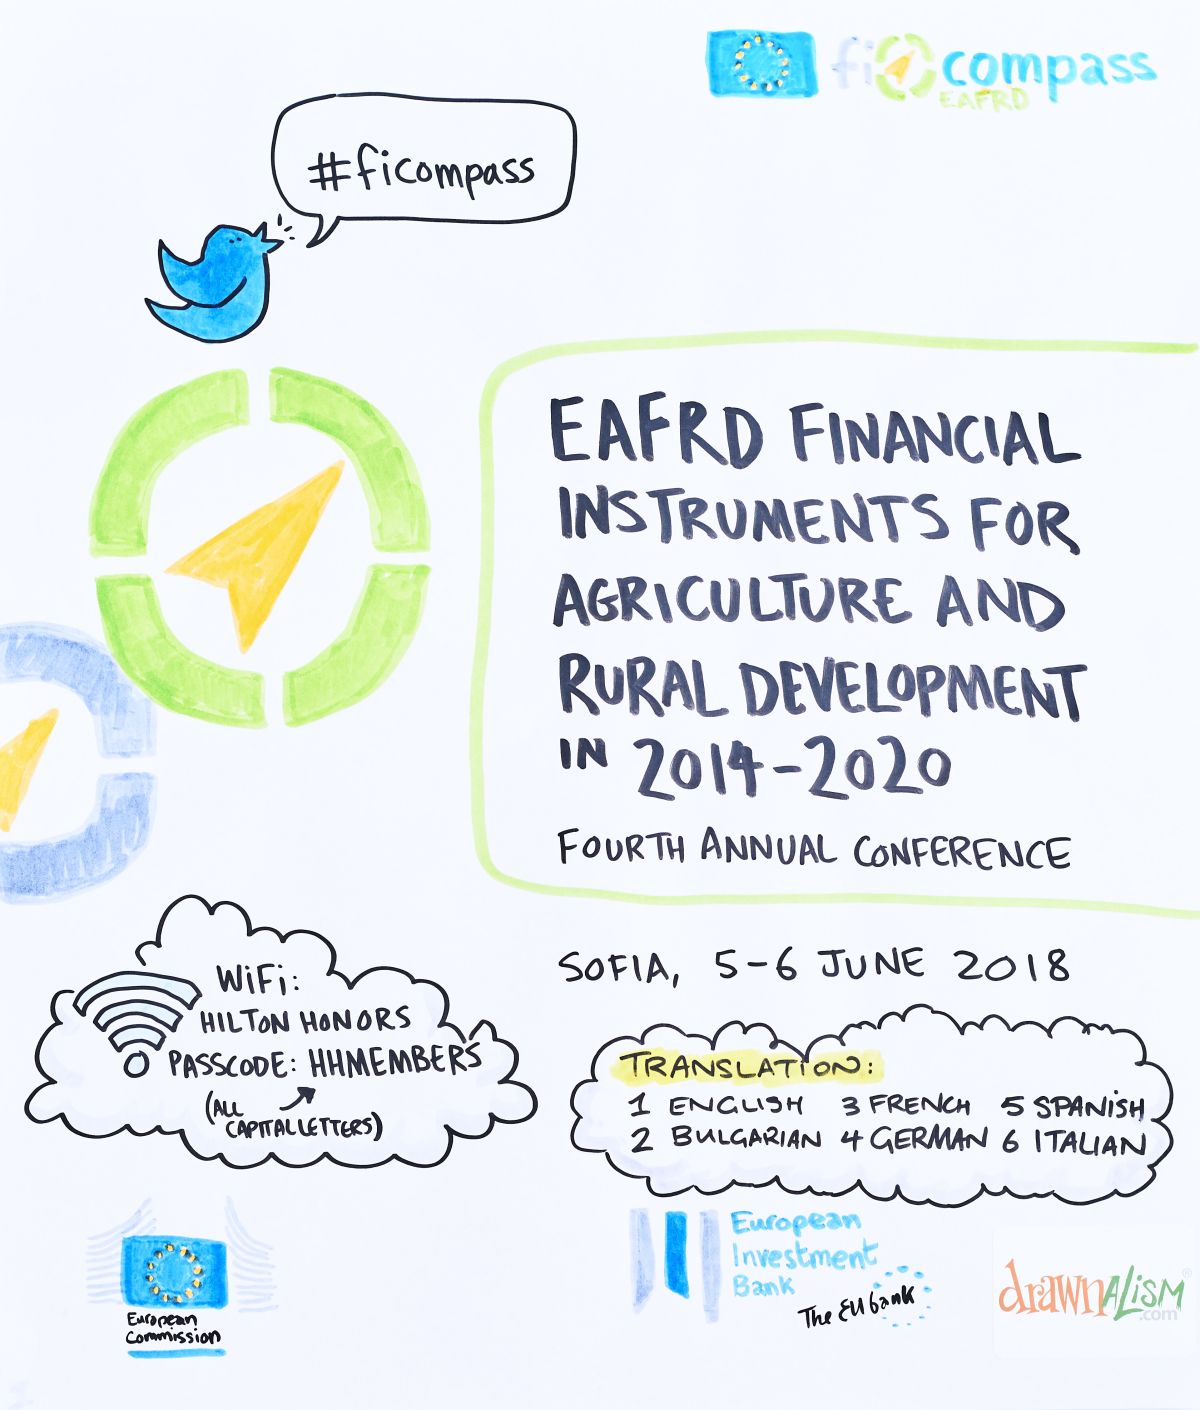 fi compass
EAFRD
#ficompass
EAFRD FINANCIAL
INSTRUMENTS FOR
AGRICULTURE AND
RURAL DEVELOPMENT
IN 2014-2020
FOURTH ANNUAL CONFERENCE
SOFIA, 5-6 JUNE 2018
WiFi:
HILTON HONORS
PASSCODE: HHMEMBERS
(ALL
CAPITAL LETTERS)
TRANSLATION:
1 ENGLISH 3 FRENCH 5 SPANiSH
2 BULGARIAN 4 GERMAN 6 ITALIAN
European
Commission
European
Investment
Bank
The EU bank
drawnALiSM®
.com